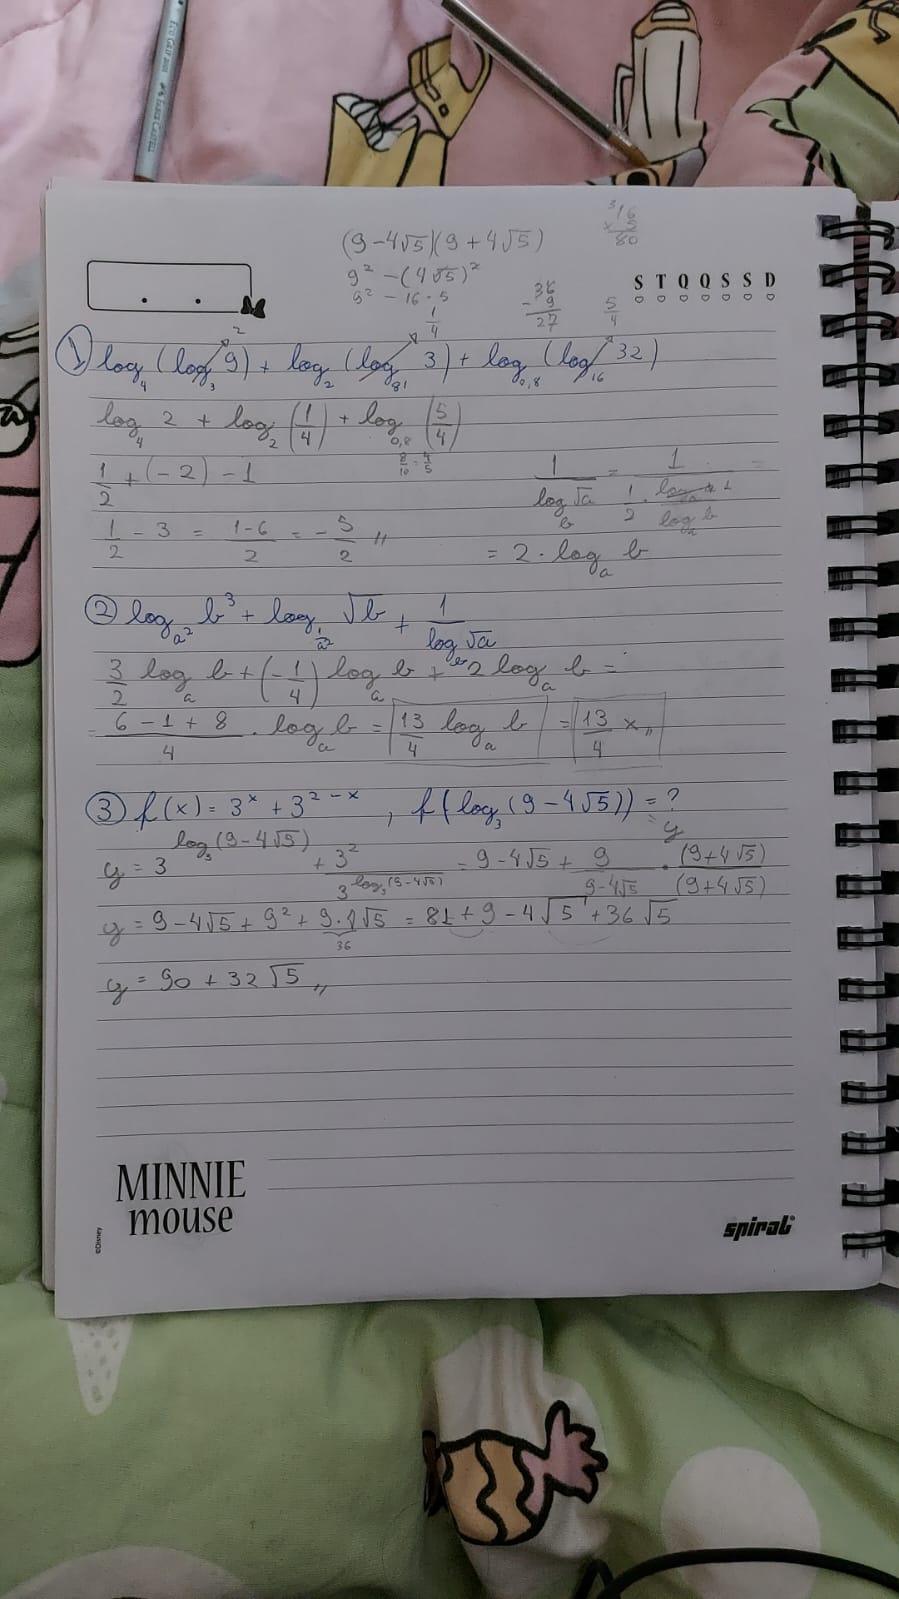 (9-4√5)(9+4√5)
9² - (4√5)²
9² - 16·5
³16
× 5
80
S T Q Q S S D
36
- 9
27
5/4
2
1/4
① log₄ (log₃ 9) + log₂ (log₈₁ 3) + log₀,₈ (log₁₆ 32)
log₄ 2 + log₂ (1/4) + log₀,₈ (5/4)
8/10 = 4/5
1/2 + (-2) - 1
1/2 - 3 = (1-6)/2 = -5/2 "
= 2 · logₐ b
② log_{a²} b³ + log_{1/a²} √b + 1/(log_b √a)
3/2 logₐ b + (-1/4) logₐ b + 2 logₐ b =
= (6 - 1 + 8)/4 · logₐ b = 13/4 logₐ b = 13/4 x "
③ f(x) = 3ˣ + 3²⁻ˣ , f(log₃ (9-4√5)) = ?
= y
y = 3^{log₃(9-4√5)} + 3²/3^{log₃(9-4√5)} = 9-4√5 + 9/(9-4√5) · (9+4√5)/(9+4√5)
y = 9-4√5 + 9² + 9·4√5 = 81 + 9 - 4√5 + 36√5
36
y = 90 + 32√5 "
MINNIE
mouse
©Disney
spiral